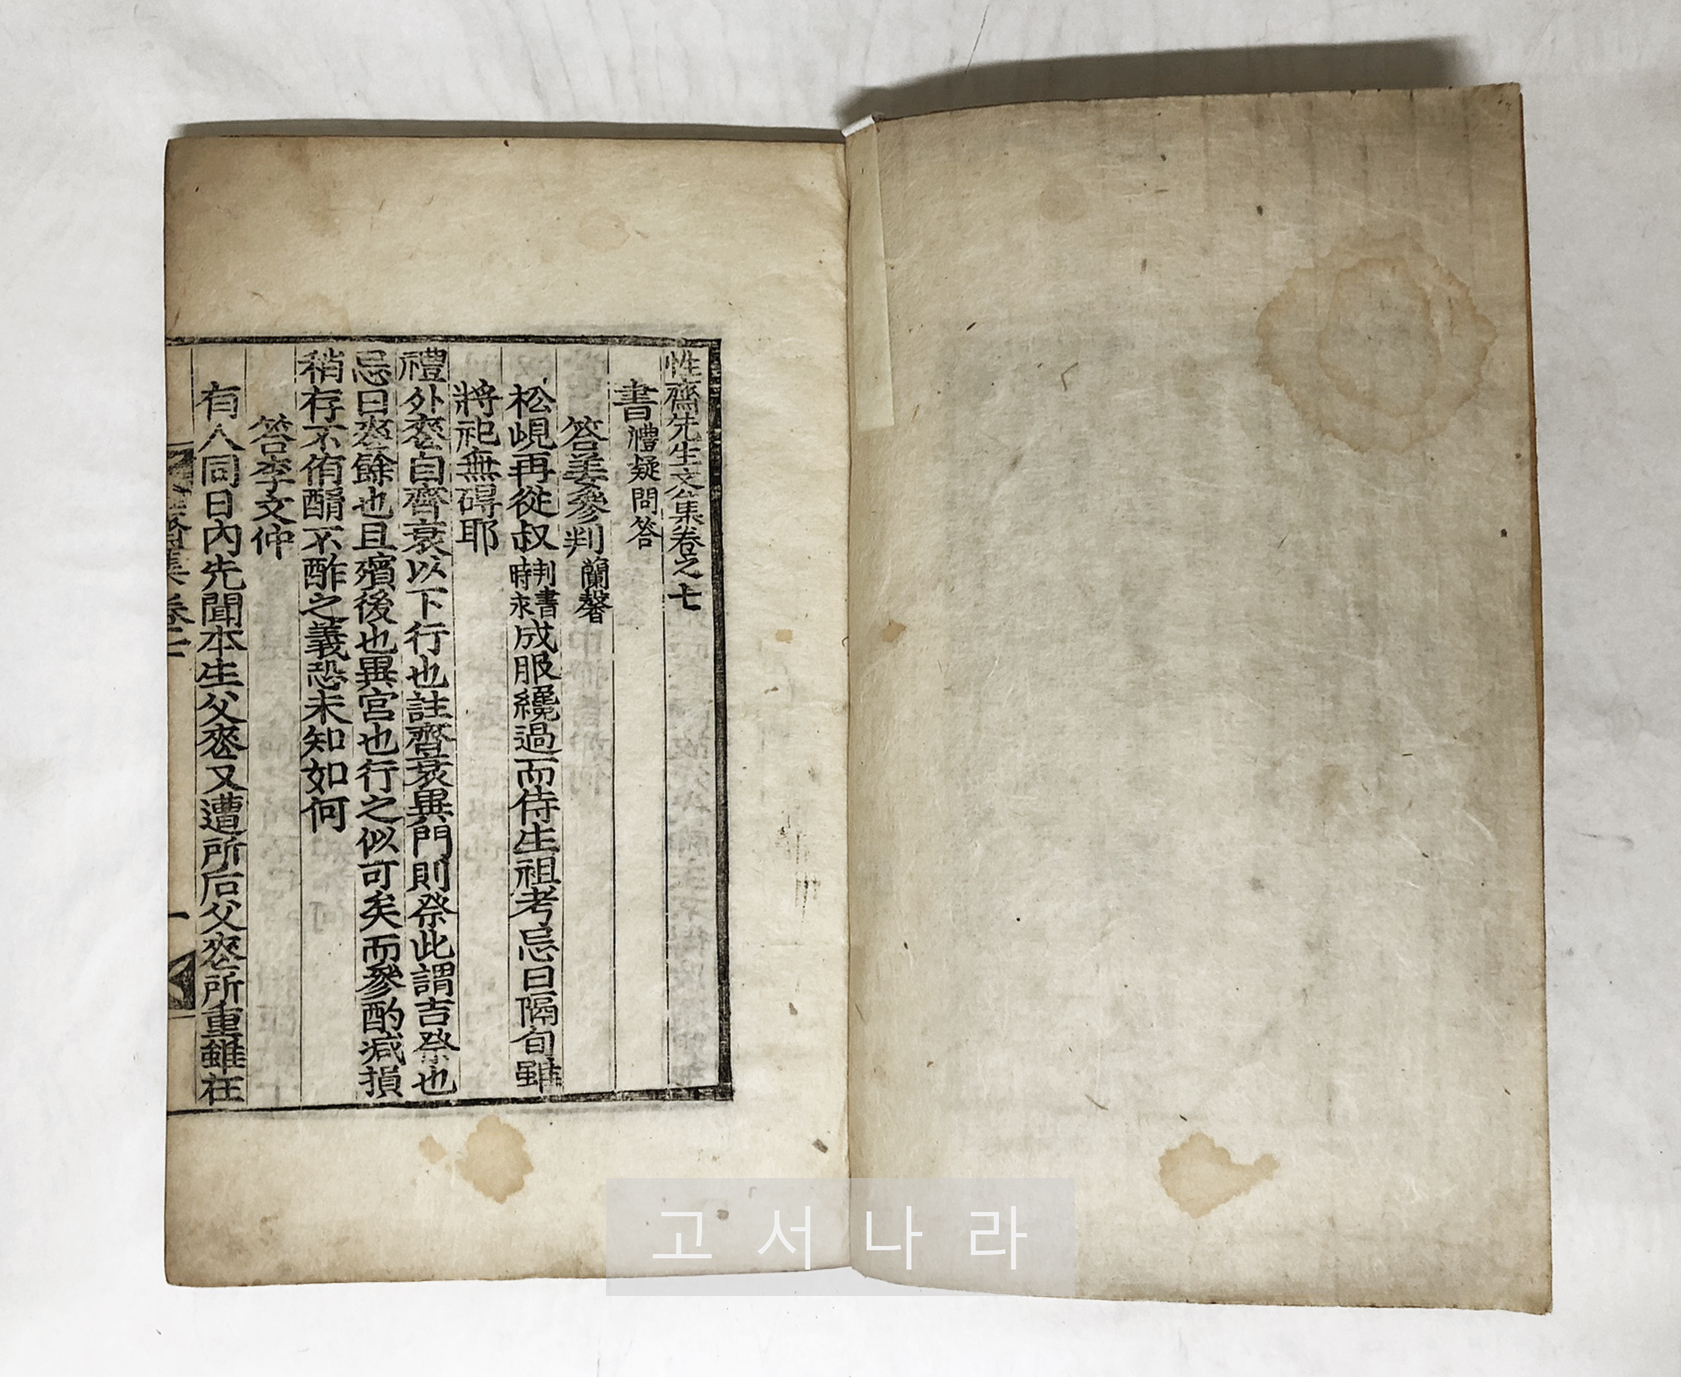 性齋先生文集卷之七
書 禮疑問答
答姜參判 蘭馨
松峴再從叔 時判書永 成服纔過而待生祖考忌日隔旬雖
將祀無碍耶
禮外喪自齊衰以下行也註齊衰異門則祭此謂吉祭也
忌日喪餘也且殯後也異宮也行之似可矣而參酌減損
稍存不侑酳不酢之義恐未知如何
答李文仲
有人同日內先聞本生父喪又遭所后父喪所重雖在
고서나라